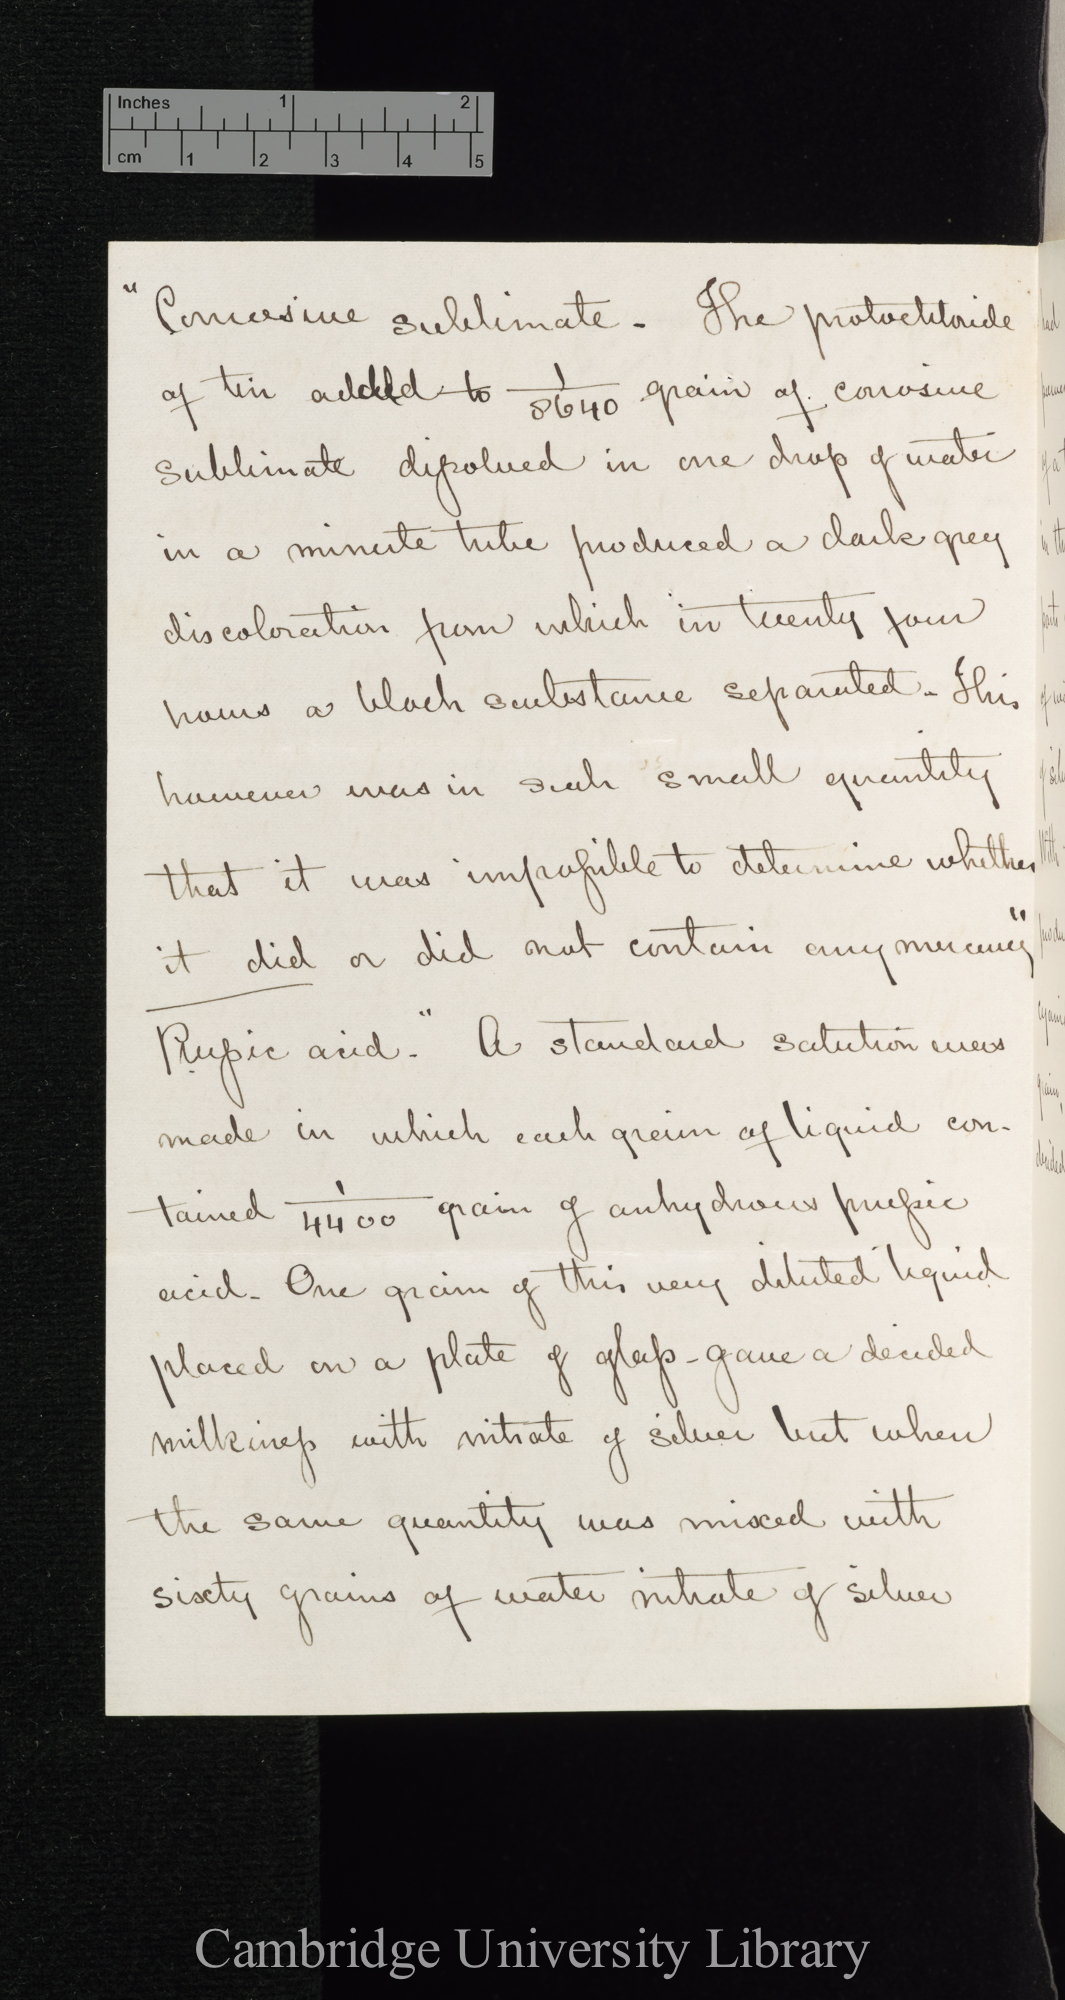 Inches 1 2
cm 1 2 3 4 5
"Corrosive sublimate - The protochloride
of tin added to 1/8640 grain of corrosive
sublimate dissolved in one drop of water
in a minute tube produced a dark grey
discoloration from which in twenty four
hours a black substance separated - This
however was in such small quantity
that it was impossible to determine whether
it did or did not contain any mercury"
Prussic acid - " A standard solution was
made in which each grain of liquid con-
tained 1/4400 grain of anhydrous prussic
acid - One grain of this very diluted liquid
placed on a plate of glass - gave a decided
milkiness with nitrate of silver but when
the same quantity was mixed with
sixty grains of water nitrate of silver
Cambridge University Library